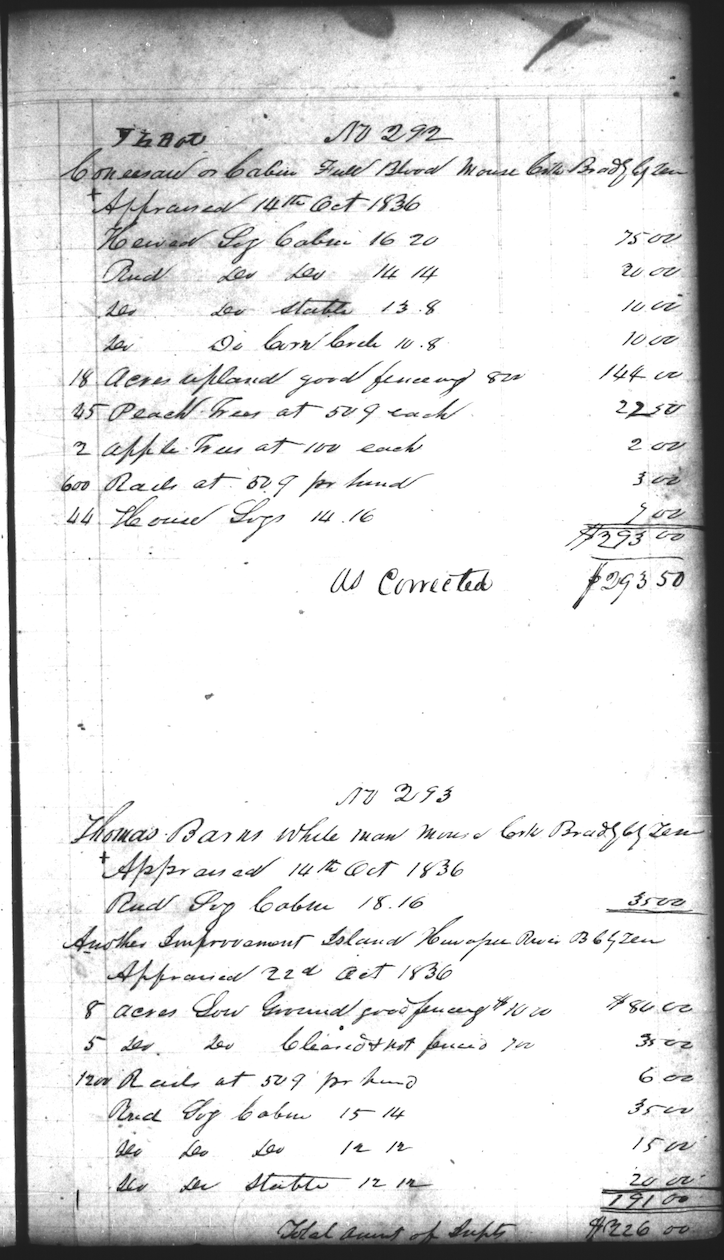 No 292
Coneesaw or Cabin Full Blood Mouse Crk Brady Cy Ten
Appraised 14th Oct 1836
Hewed Log Cabin 16 20 75 00
Rnd Do Do 14 14 20 00
Do Do Stable 13.8 10 00
Do Do Corn Crib 10.8 10 00
18 Acres upland good fencing 800 144 00
45 Peach Trees at 50 each 22 50
2 Apple Trees at 100 each 2 00
600 Rails at 50 pr hund 3 00
44 House Logs 14.16 7 00
$293 00
As Corrected $293 50
No 293
Thomas Barns White man Mouse Crk Brady Cy Ten
Appraised 14th Oct 1836
Rnd Log Cabin 18.16 35 00
Another Improvement Island River B Cy Ten
Appraised 22d Oct 1836
8 acres Low Ground good fencing $10 00 $80 00
5 Do Do Cleared & not fenced 7 00 35 00
1200 Rails at 50 pr hund 6 00
Rnd Log Cabin 15 14 35 00
Do Do Do 12 12 15 00
Do Do Stable 12 12 20 00
191 00
Total Amt of Impts $226 00